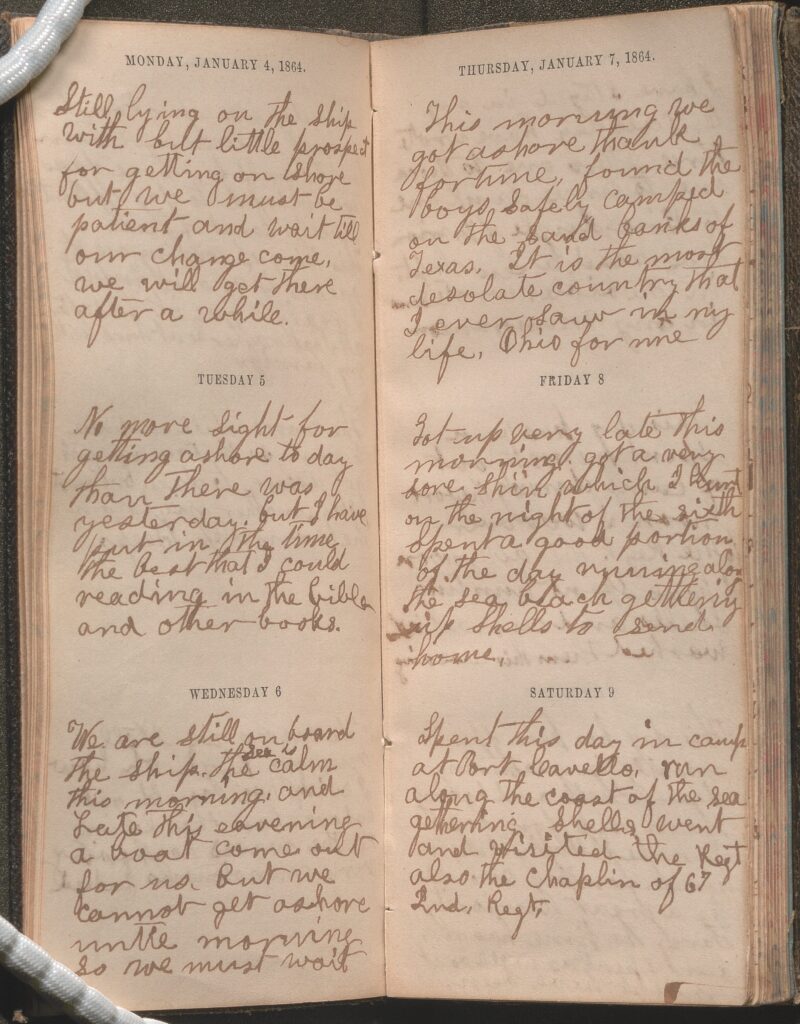 MONDAY, JANUARY 4, 1864.
Still lying on the ship
with but little prospect
for getting on shore
but we must be
patient and wait till
our change come,
we will get there
after a while.
TUESDAY 5
No more sight for
getting ashore to day
than there was
yesterday. but I have
put in the time
the best that I could
reading in the bible
and other books.
WEDNESDAY 6
We are still on board
the ship. the sea is calm
this morning. and
Late this eavening
a boat come out
for us but we
cannot get ashore
untle morning
so we must wait
THURSDAY, JANUARY 7, 1864.
This morning we
got ashore thank
fortune, found the
boys safely camped
on the sand banks of
Texas. It is the most
desolate country that
I ever saw in my
life, Ohio for me
FRIDAY 8
Got up very late this
morning. got a very
sore shin which I
on the night of the sixth
spent a good portion
of the day running along
the sea beach gethering
up shells to send
home,
SATURDAY 9
Spent this day in camp
at Port Cavello, run
along the coast of the sea
gethering shells went
and visited the Regt
also the Chaplin of 67
Ind, Regt,